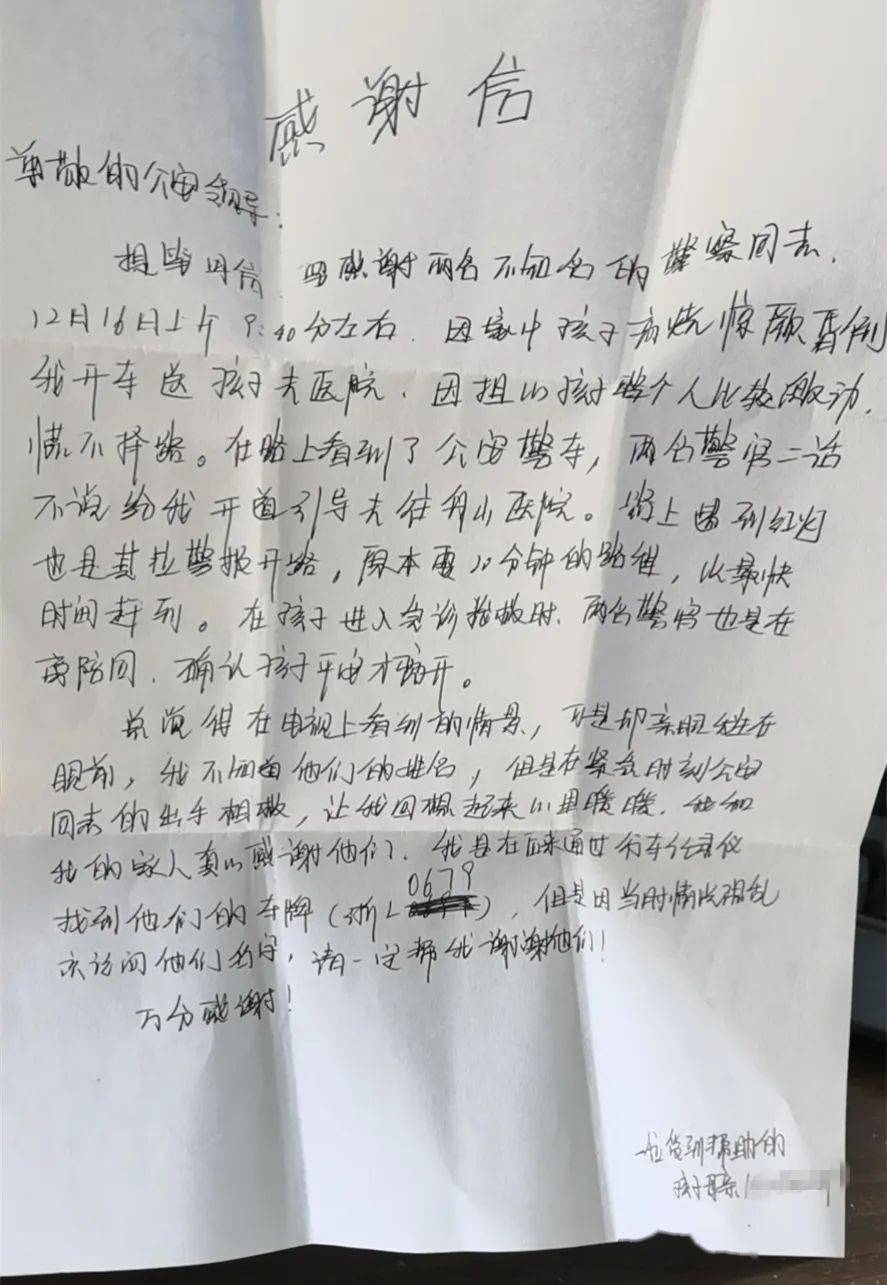 感谢信
尊敬的公安领导:
提笔写信 感谢两名不知名的警察同志.
12月16日上午9:40分左右. 因家中孩子高烧惊厥昏倒
我开车送孩子去医院. 因担心孩子整个人比较激动,
慌不择路。在路上看到了公安警车, 两名警官二话
不说给我开道引导去往舟山医院。路上遇到红灯
也是其拉警报开路, 原本要20分钟的路程, 以最快
时间赶到。在孩子进入急诊抢救时. 两名警官也是在
旁陪同. 确认孩子平安才离开。
总觉得在电视上看到的情景, 可是却亲眼发生在
眼前, 我不知道他们的姓名, 但是在紧急时刻公安
同志的出手相救, 让我回想起来心里暖暖. 我和
我的家人真心感谢他们. 我是在后来通过行车记录仪
找到他们的车牌(浙L 0679), 但是因当时情况混乱
未访问他们名字, 请一定帮我谢谢他们!
万分感谢!
一位受到帮助的
孩子母亲